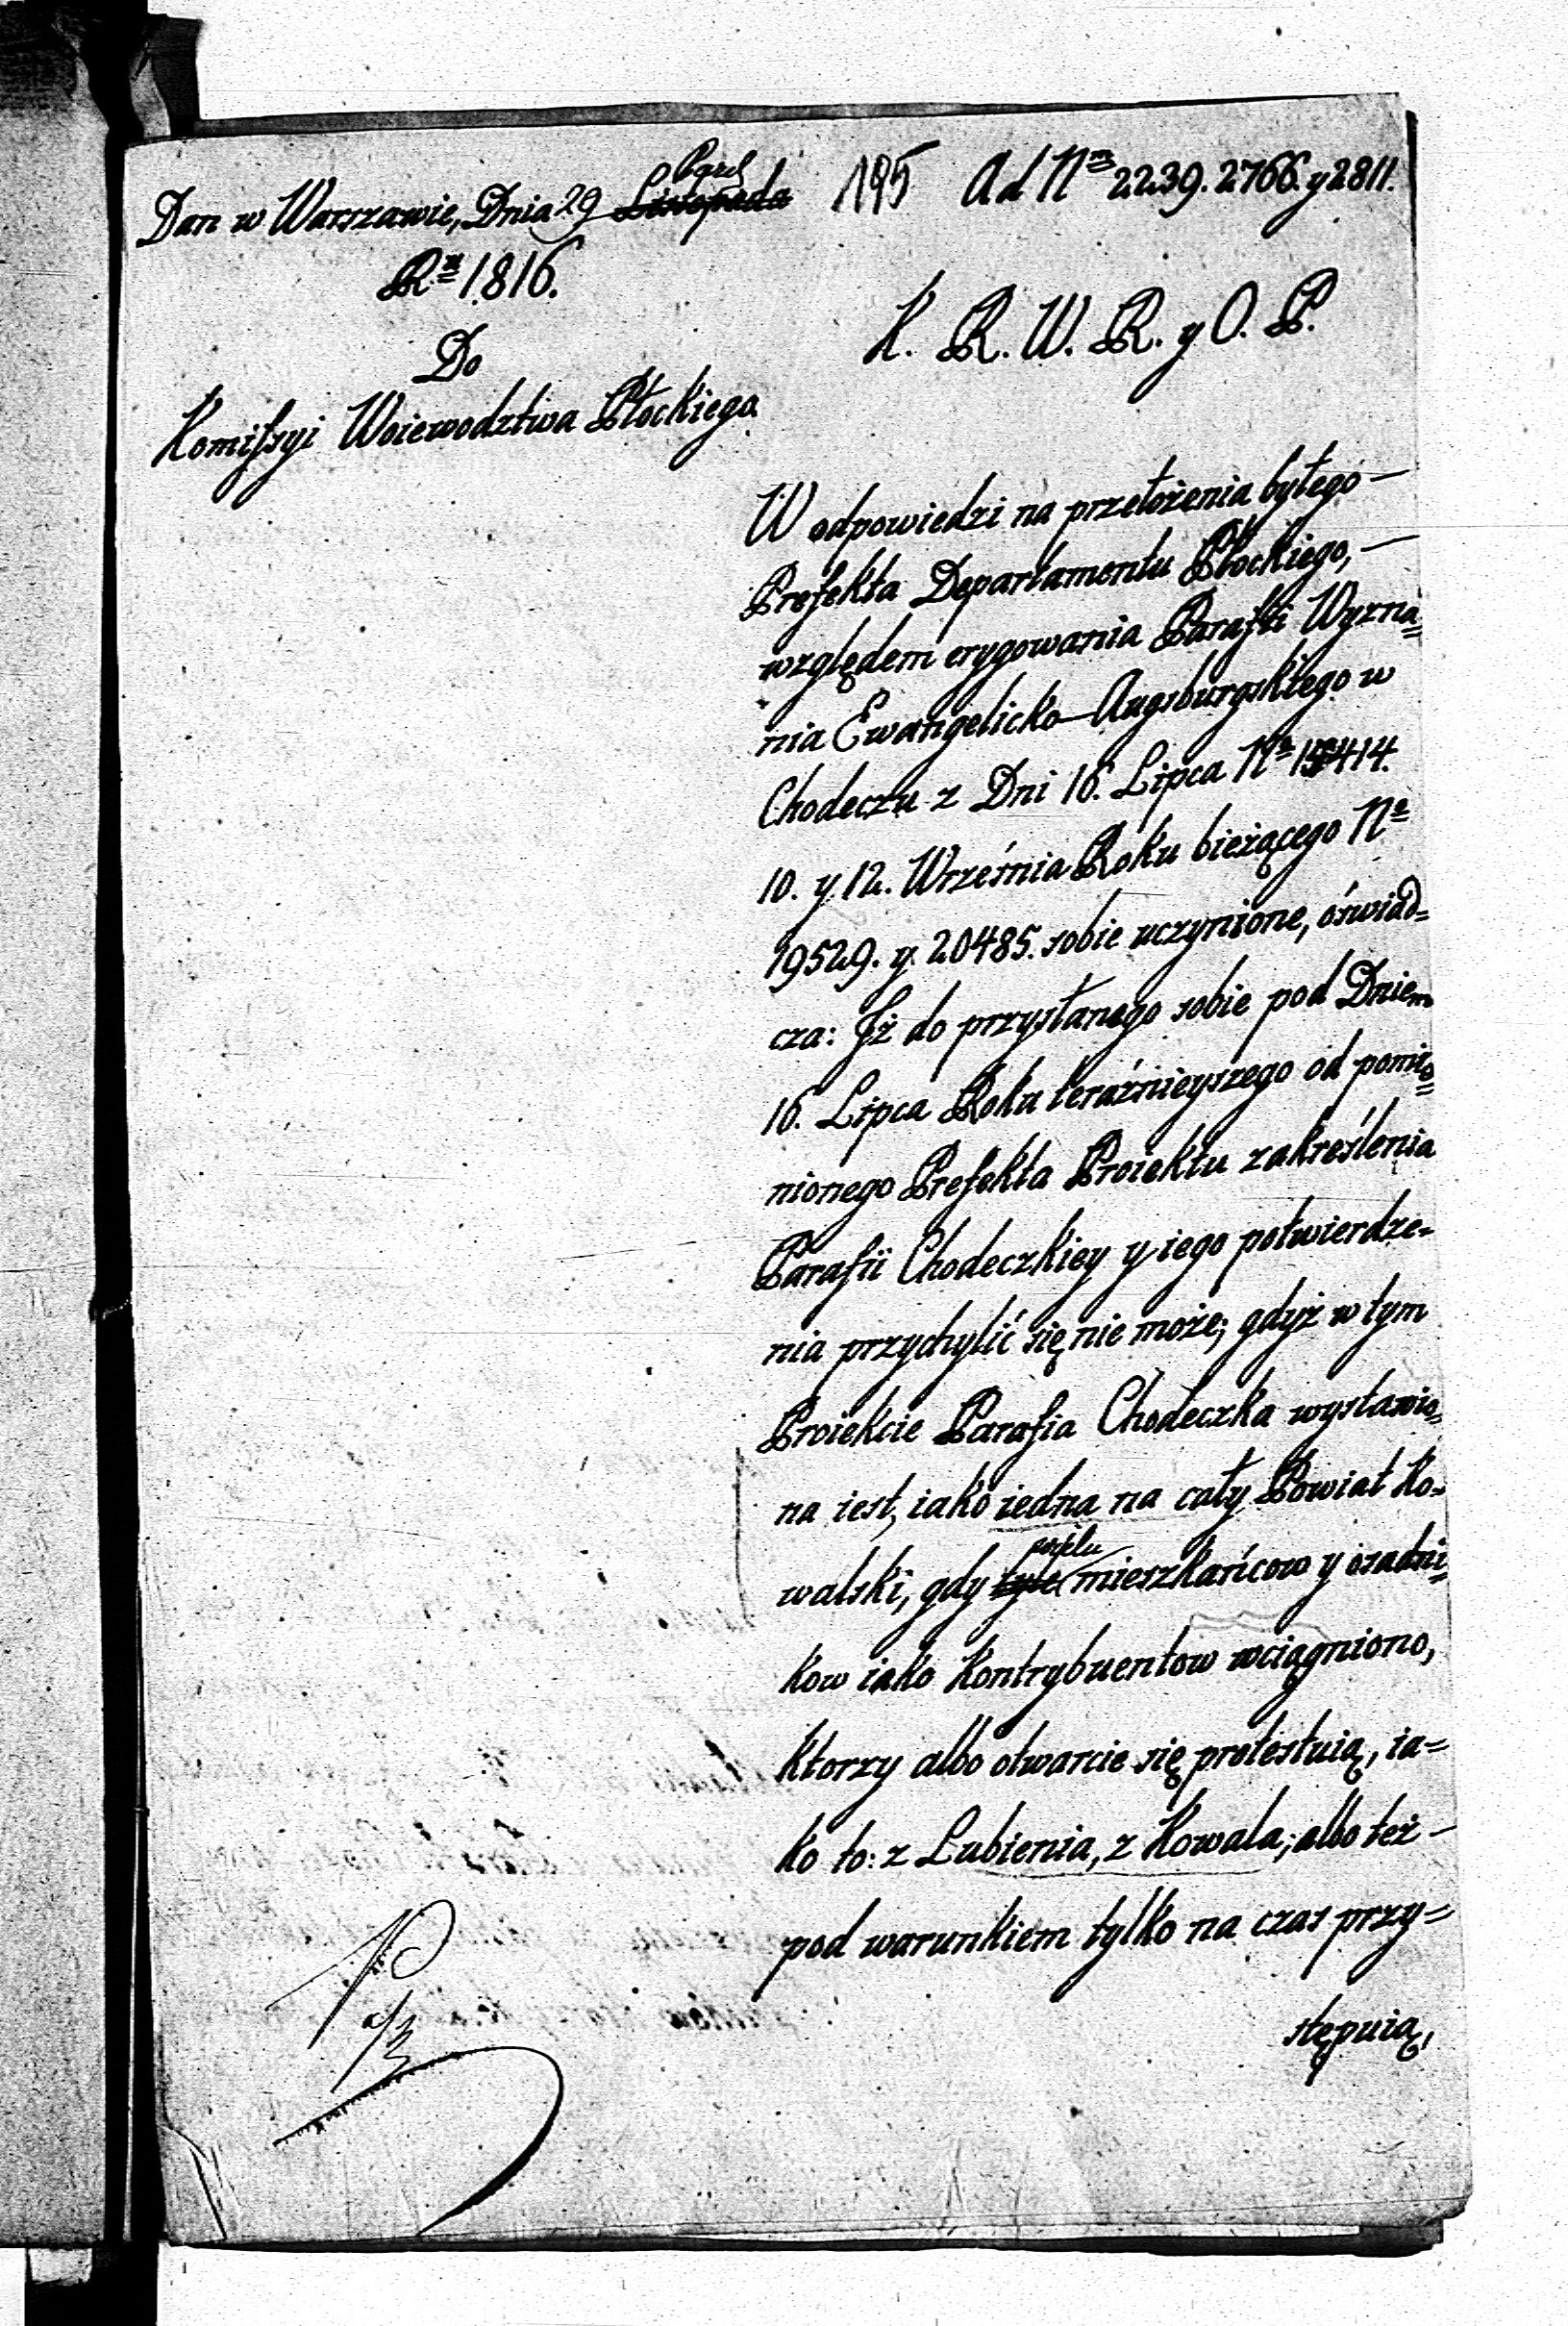 195 Ad Nm 2239. 2766. y 2811.
Dan w Warszawie, Dnia 29 Listopada
Rku 1816.
K. R. W. R. y O. P.
Do
Komissyi Woiewodztwa Płockiego
W odpowiedzi na przełożenia byłego —
Prefekta Departamentu Płockiego, —
względem erygowania Parafii Wyzna=
nia Ewangelicko-Augsburgskiego w
Chodeczu z Dni 16. Lipca No 15414.
10. y 12. Września Roku bieżącego No
19529. y 20485. sobie uczynione, oświad=
cza: Iż do przysłanego sobie pod Dniem
16. Lipca Roku teraźnieyszego od pomie=
nionego Prefekta Proiektu zakreślenia
Parafii Chodeczkiey y iego potwierdze=
nia przychylić się nie może; gdyż w tym
Proiekcie Parafia Chodeczka wystawio=
na iest, iako iedna na cały Powiat Ko=
walski, gdy tyle wielu mieszkańcow y osadni=
kow iako Kontrybuentow wciągniono,
Ktorzy albo otwarcie się protestuią, ia=
ko to: z Lubienia, z Kowala; albo też —
pod warunkiem tylko na czas przy=
stępuią,